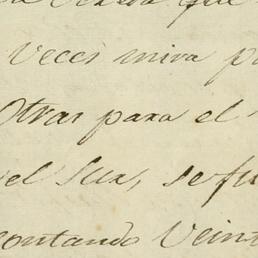 que
Veces mira p
Otras para el
el Sur, se fu
contando Veint